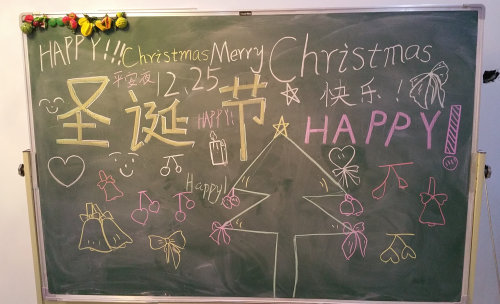 HAPPY!!! Christmas Merry Christmas
平安夜 12.25
圣诞节 快乐!
HAPPY!!
HAPPY!
Happy!